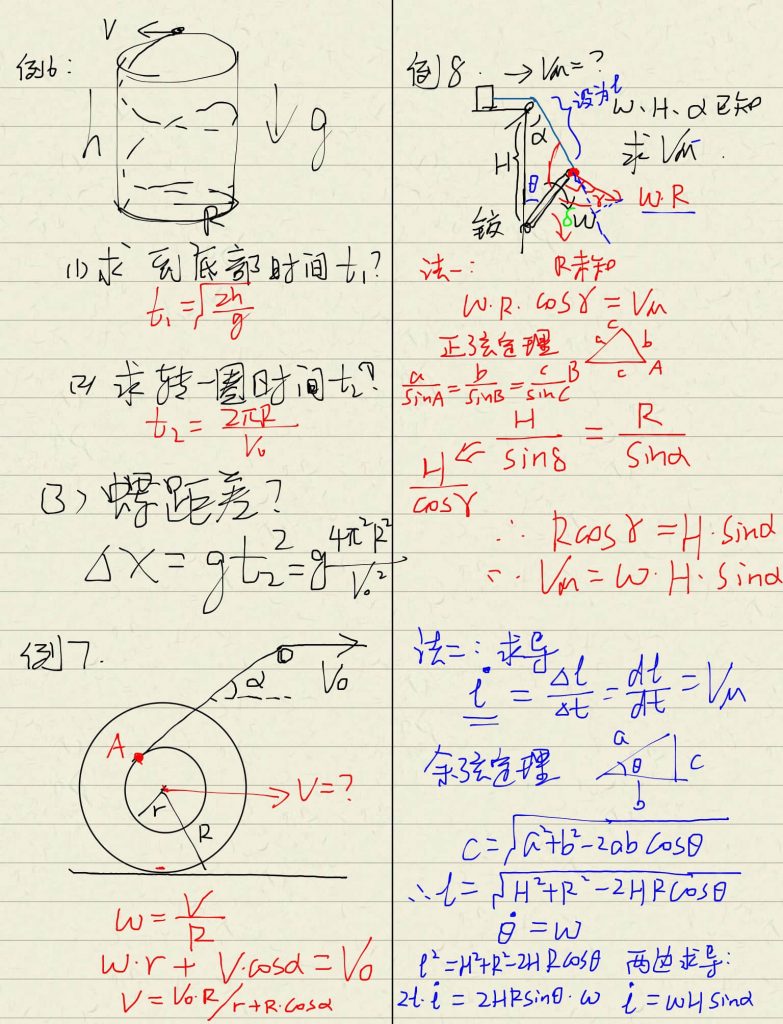 例6:
V
h
g
R
(1)求 到底部时间 t₁?
t₁=√(2h/g)
(2) 求转一圈时间t₂?
t₂=2πR/V₀
(3) 螺距差?
Δx=gt₂²=g4π²R²/V₀²
例7.
V₀
α
A
V=?
r
R
ω=V/R
ω·r+V·cosα=V₀
V=V₀·R/r+R·cosα
例8. →Vм=?
设为l
ω、H、α已知
求Vм
α
H
θ
γ
ω·R
铰
δ
ω
法一:
R未知
ω·R·cosγ=Vм
正弦定理
C
a b
B c A
a/sinA=b/sinB=c/sinC
H/sinδ=R/sinα
H/cosγ
∴Rcosγ=H·sinα
∵Vм=ω·H·sinα
法二:求导
l̇=Δl/Δt=dl/dt=Vм
余弦定理
a
θ c
b
c=√(a²+b²-2ab cosθ)
∴l=√(H²+R²-2HRcosθ)
θ̇=ω
l²=H²+R²-2HRcosθ 两边求导:
2l·l̇=2HRsinθ·ω l̇=ωHsinα